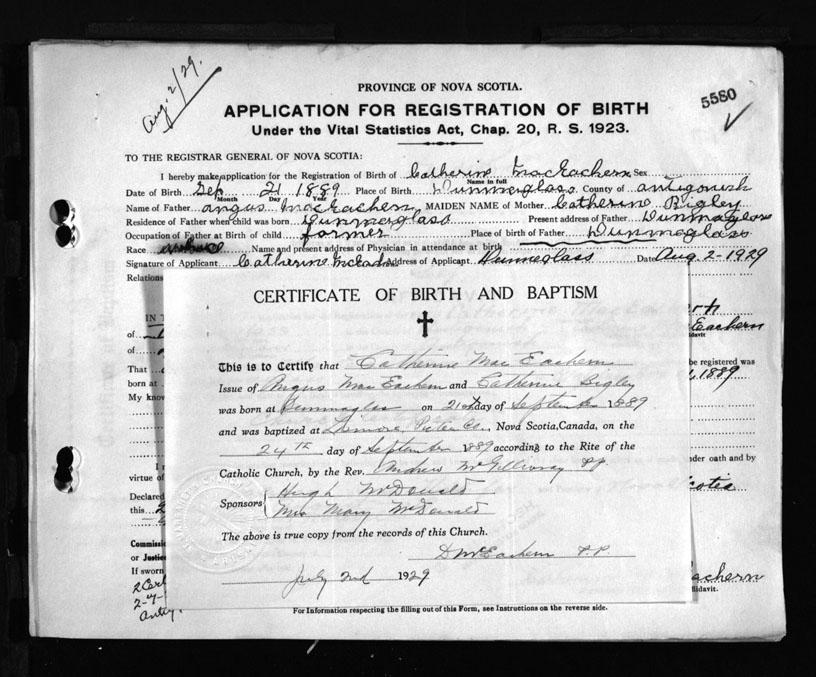 Aug. 2/29.
5580
PROVINCE OF NOVA SCOTIA.
APPLICATION FOR REGISTRATION OF BIRTH
Under the Vital Statistics Act, Chap. 20, R. S. 1923.
TO THE REGISTRAR GENERAL OF NOVA SCOTIA:
I hereby make application for the Registration of Birth of Catherine MacEachern Sex
Name in full
Date of Birth Sep 21 1889 Place of Birth Dunmaglass County of Antigonish
Month Day Year
Name of Father Angus MacEachern MAIDEN NAME of Mother Catherine Bigley
Residence of Father when child was born Dunmaglass Present address of Father Dunmaglass
Occupation of Father at Birth of child farmer Place of birth of Father Dunmaglass
Race Name and present address of Physician in attendance at birth
Signature of Applicant Catherine Address of Applicant Dunmaglass Date Aug 2-1929
Relations
CERTIFICATE OF BIRTH AND BAPTISM
This is to Certify that Catherine Mac Eachern
Issue of Angus Mac Eachern and Catherine Bigley
was born at Dunmaglass on 21st day of September 1889
and was baptized at Lismore, Pictou Co., Nova Scotia, Canada, on the
24th day of September 1889 according to the Rite of the
Catholic Church, by the Rev. Andrew McGillivray P.P.
Sponsors Hugh McDonald
Mrs Mary McDonald
The above is true copy from the records of this Church.
D McEachern P.P.
July 2nd 1929
IN T
of
of
That
born at
My know
virtue of
Declared
this
Commissi
or Justice
If sworn
Eachern
be registered was
1889
under oath and by
Scotia
achern
For Information respecting the filling out of this Form, see Instructions on the reverse side.